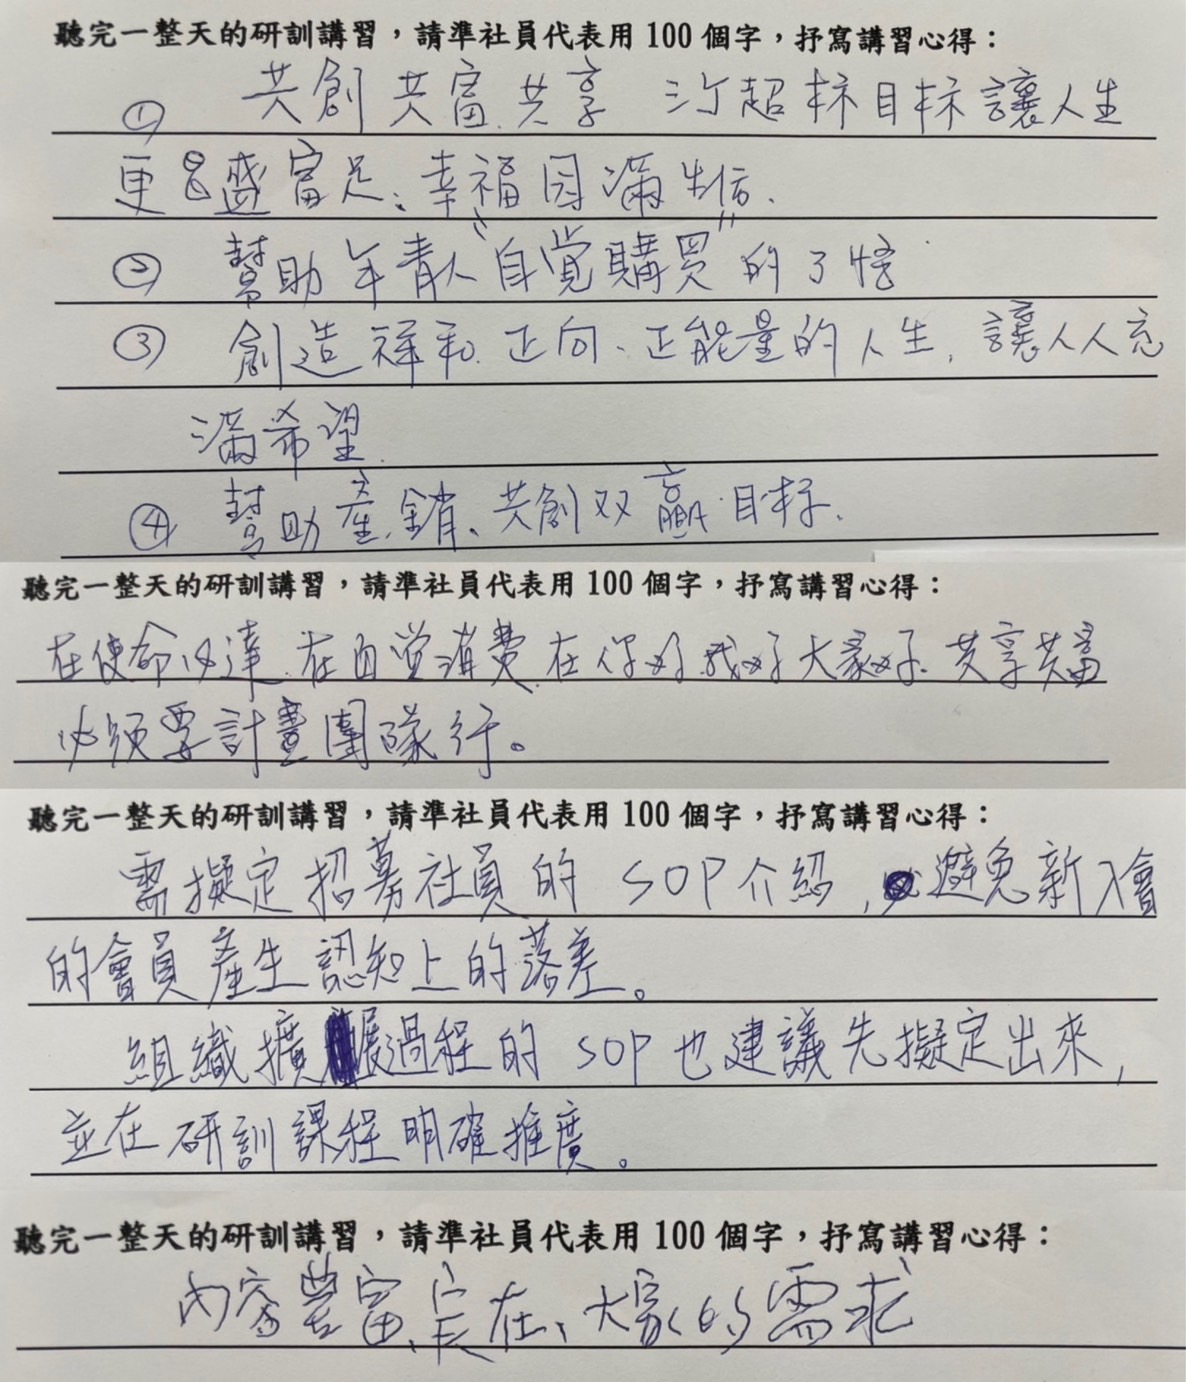 聽完一整天的研訓講習，請準社員代表用 100 個字，抒寫講習心得：
① 共創共富.共享 訂超標目標讓人生
更盛富足、幸福圓滿生活.
② 幫助年青人"自覺購買"的了悟
③ 創造祥和.正向、正能量的人生, 讓人人充
滿希望.
④ 幫助產.銷、共創双贏目标.
聽完一整天的研訓講習，請準社員代表用 100 個字，抒寫講習心得：
在使命必達.在自覺消費.在你好.我好大家好.共享共富
必須要計畫團隊行。
聽完一整天的研訓講習，請準社員代表用 100 個字，抒寫講習心得：
需擬定招募社員的 SOP介紹,避免新入會
的會員產生認知上的落差。
組織擴展過程的 SOP也建議先擬定出來,
並在研訓課程明確推廣。
聽完一整天的研訓講習，請準社員代表用 100 個字，抒寫講習心得：
內容豐富、在、大家的需求